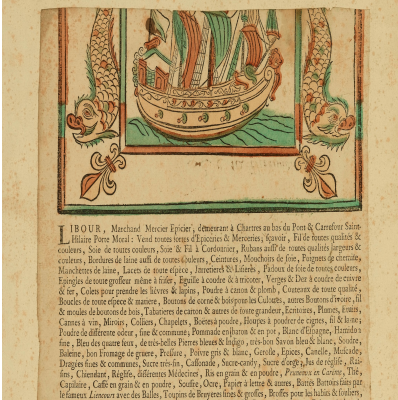 LIBOUR, Marchand Mercier Epicier, demeurant à Chartres au bas du Pont & Carrefour Saint-
Hilaire Porte Moral: Vend toutes sortes d'Epiceries & Merceries; sçavoir, Fil de toutes qualités &
couleurs, Soie de toutes couleurs, Soie & Fil à Cordonnier, Rubans aussi de toutes qualités largeurs &
couleurs, Bordures de laine aussi de toutes couleurs, Ceintures, Mouchoirs de soie, Poignets de
Manchettes de laine, Lacets de toute espece, Jarretieres & Lisieres, Padoux de soie de toutes couleurs,
Epingles de toute grosseur même à friser, Eguille à coudre & à tricoter, Verges & Dez à coudre de cuivre
& fer, Colets pour prendre les liévres & lapins, Poudre à canon & plomb, Couteaux de toute qualité,
Boucles de toute espece & matiere, Boutons de corne & bois pour les Culottes, autres Boutons d'ivoire, fil
& moules de boutons de bois, Tabatieres de carton & autres de toute grandeur, Ecritoires, Plumes,
Cannes à vin, Miroirs, Colliers, Chapelets, Boetes à poudre, Houpes à poudre de cignes, fil & laine;
Poudre de differente odeur, fine & commune, Pommade en baton & en pot, Blanc d'Espagne, Hamidon
fin, Bleu des quatre feux, de très-belles Pierres bleues & Indigo, très-bon Savon bleu & blanc, Soudre,
Baleine, bon Fromage de gruiere, Pressure, Poivre gris & blanc, Gerofle, Epices, Canelle, Muscade,
Dragées fines & communes, Sucre très-fin, Cassonade, Sucre-candy, Sucre d'orge, Jus de réglise, Rai-
sins, Chiendant, Réglise, differentes Médecines, Ris en grain & en poudre, Pruneaux en Carême, Thé,
Capilaire, Caffé en grain & en poudre, Souffre, Ocre, Papier à lettre & autres, Battés Battoirs faits par
le fameux Liencourt avec des Balles, Toupins de Bruyeres fines & grosses, Brosses pour les habits & souliers,